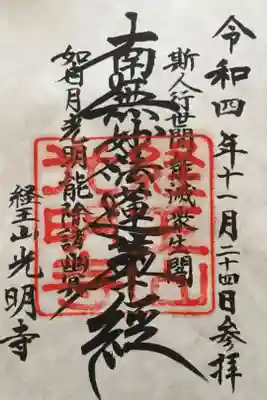 令和四年十一月二十四日参拝
斯人行世間能滅衆生闇
南無妙法蓮華経
如日月光明能除諸幽冥
経王山光明寺